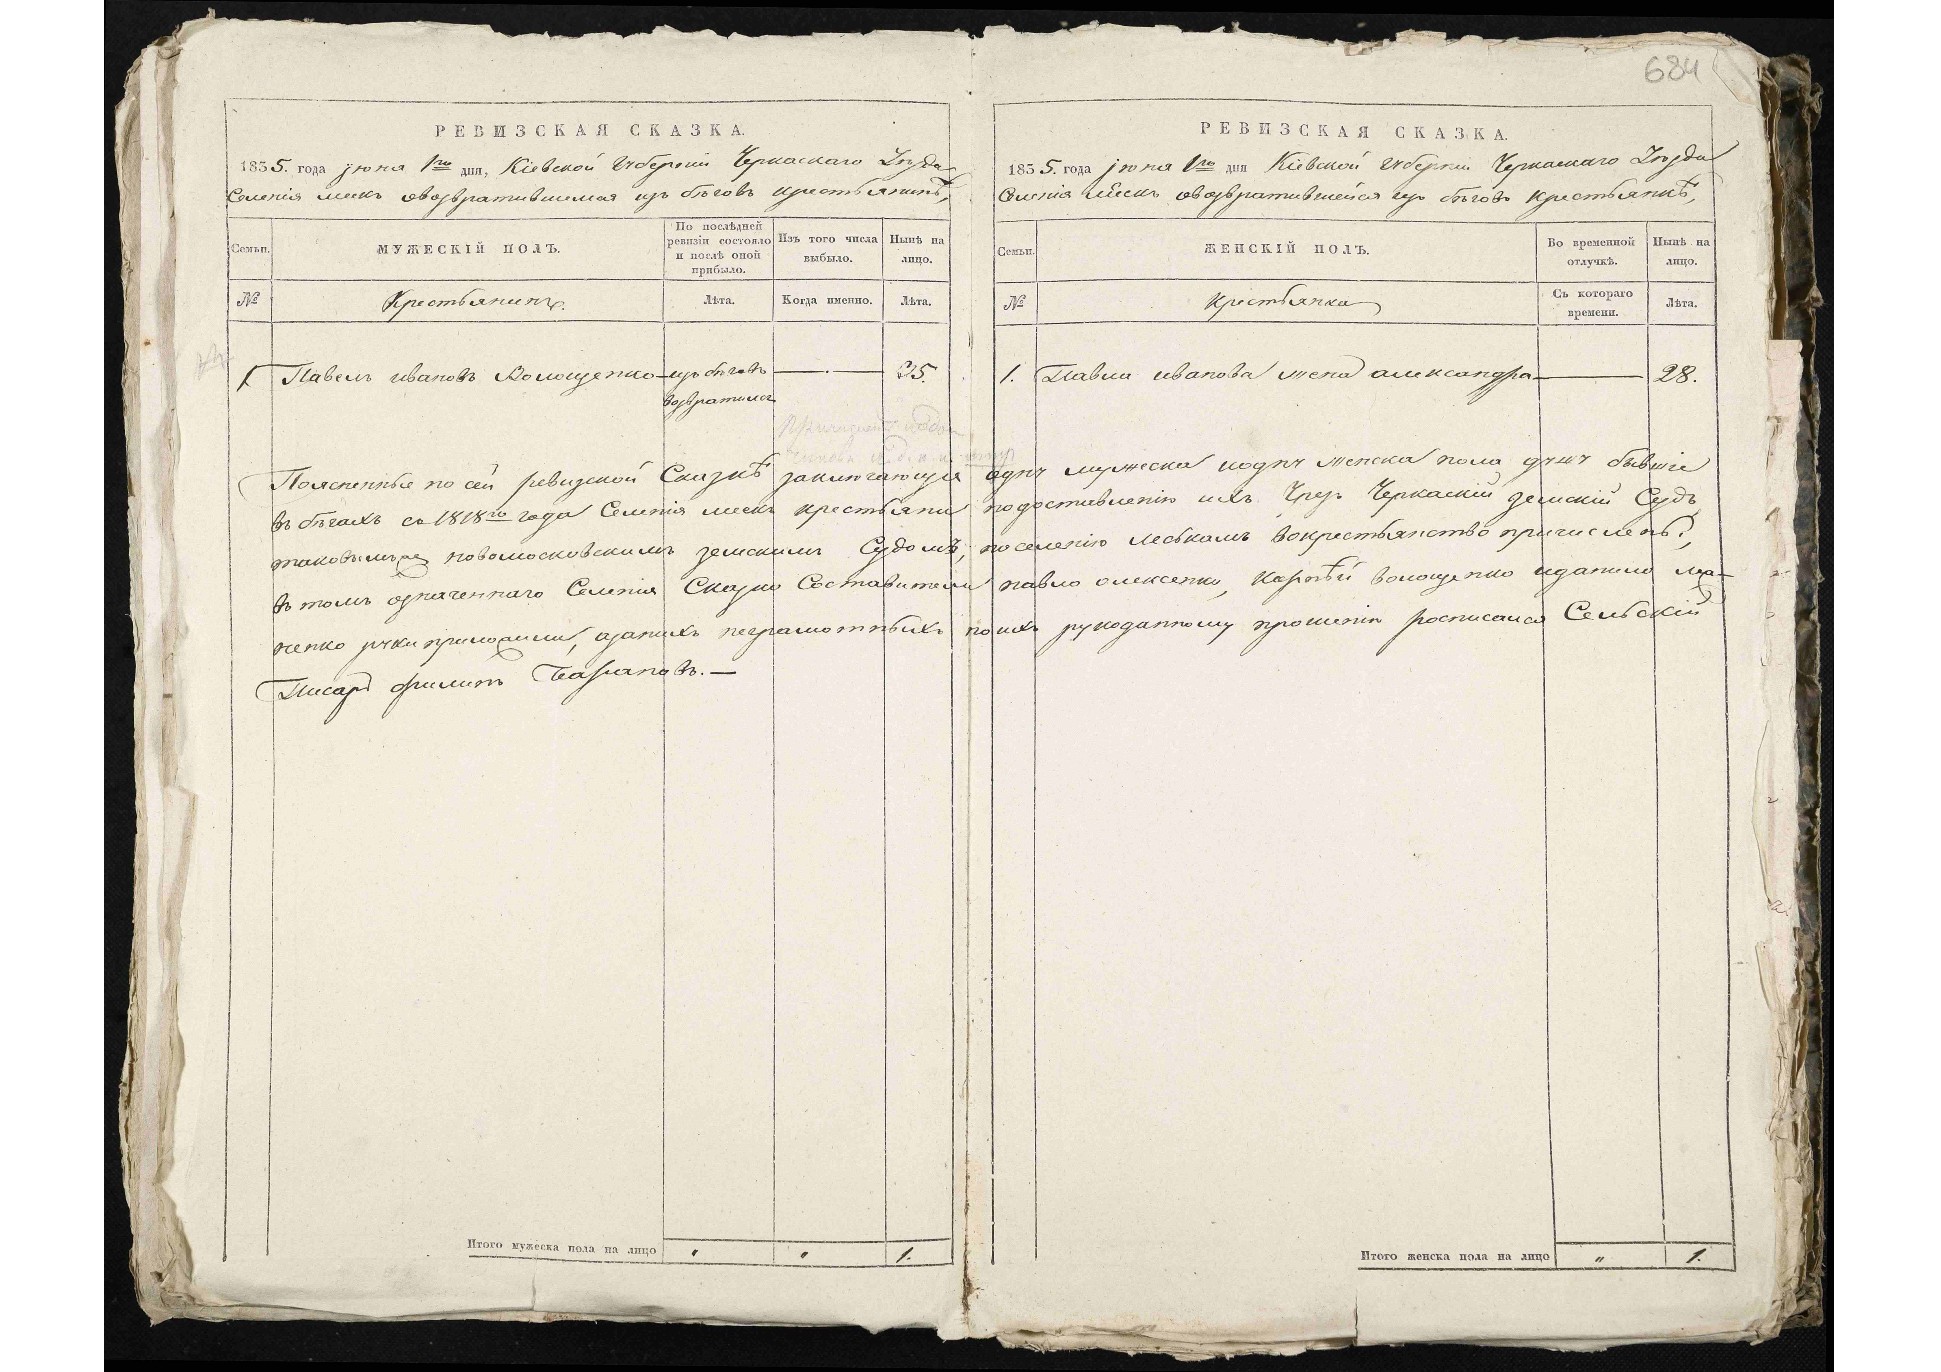 684
РЕВИЗСКАЯ СКАЗКА.
1835. года июня 1го дня, Кіевской Губерніи Черкаскаго Уѣзда
Селенія Леськ овозвратившемся изъ бѣговъ крестьянинѣ,
Семьи.
МУЖЕСКІЙ ПОЛЪ.
По послѣдней ревизіи состояло и послѣ оной прибыло.
Изъ того числа выбыло.
Нынѣ на лицо.
№
Крестьянинъ.
Лѣта.
Когда именно.
Лѣта.
1 Павелъ ивановъ Волощенко изъ бѣговъ 35.
возвратился
Итого мужеска пола на лицо " " 1.
РЕВИЗСКАЯ СКАЗКА.
1835. года июня 1го дня Кіевской Губерніи Черкаскаго Уѣзда
Селенія Леськ овозвратившейся изъ бѣговъ крестьянкѣ,
Семьи.
ЖЕНСКІЙ ПОЛЪ.
Во временной отлучкѣ.
Нынѣ на лицо.
№
Крестьянка
Съ котораго времени.
Лѣта.
1. Павла иванова жена александра 28.
Пояснѣнные по сей ревизской Сказкѣ заключающія однѣ мужеска иоднѣ женска пола душъ бывшіе
въ бѣгахъ съ 1818го года Селенія леськ крестьяни подоставленію ихъ Чрезъ Черкаскій земскій Судъ
таковымъже новомосковскимъ земскимъ Судомъ, поселенію леськамъ вокрестьянство причислены,
въ томъ означеннаго Селенія Сказко Составители павло олексенко, Карпѣй волощенко иданило
ненко руки приложили, азанихъ неграмотныхъ поихъ рукоданному прошенію росписался Сельскій
Писарь филипъ
Итого женска пола на лицо " 1.